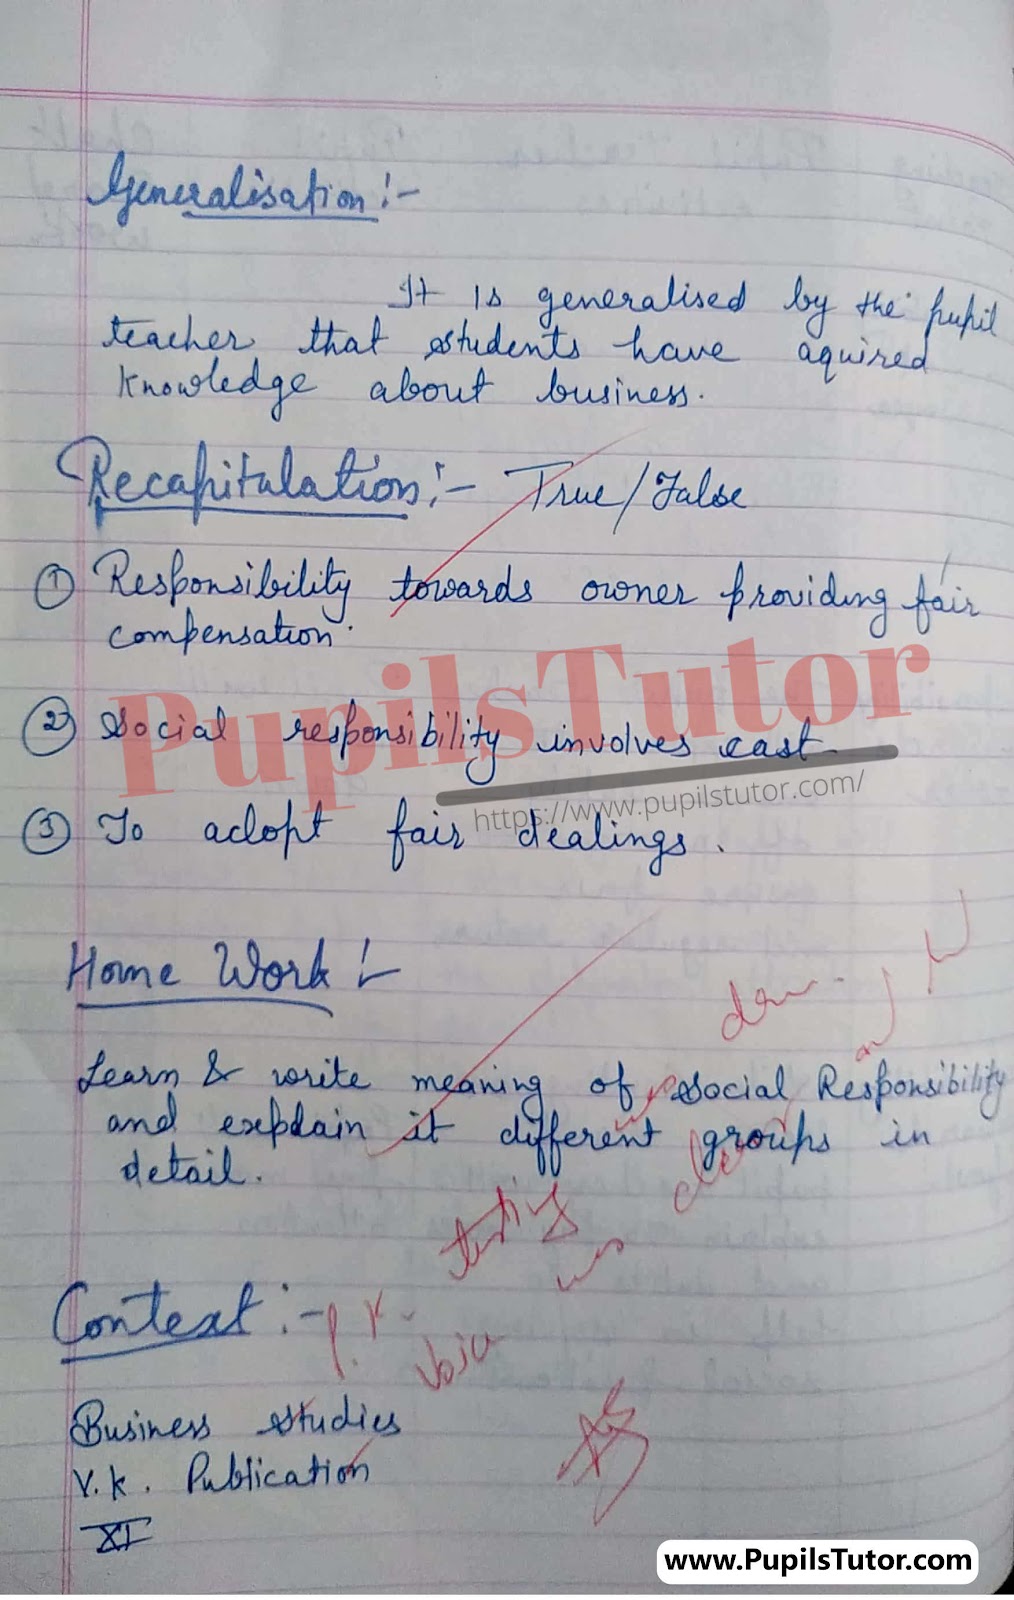 Generalisation :-
It is generalised by the pupil
teacher that students have aquired
knowledge about business.
Recapitulation :- True/False
① Responsibility towards owner providing fair
compensation.
PupilsTutor
② Social responsibility involves cast
https://www.pupilstutor.com/
③ To adopt fair dealings.
Home Work :-
Learn & write meaning of social Responsibility
and explain it different groups in
detail.
Context :-
Business studies
V.K. Publication
XI
www.PupilsTutor.com